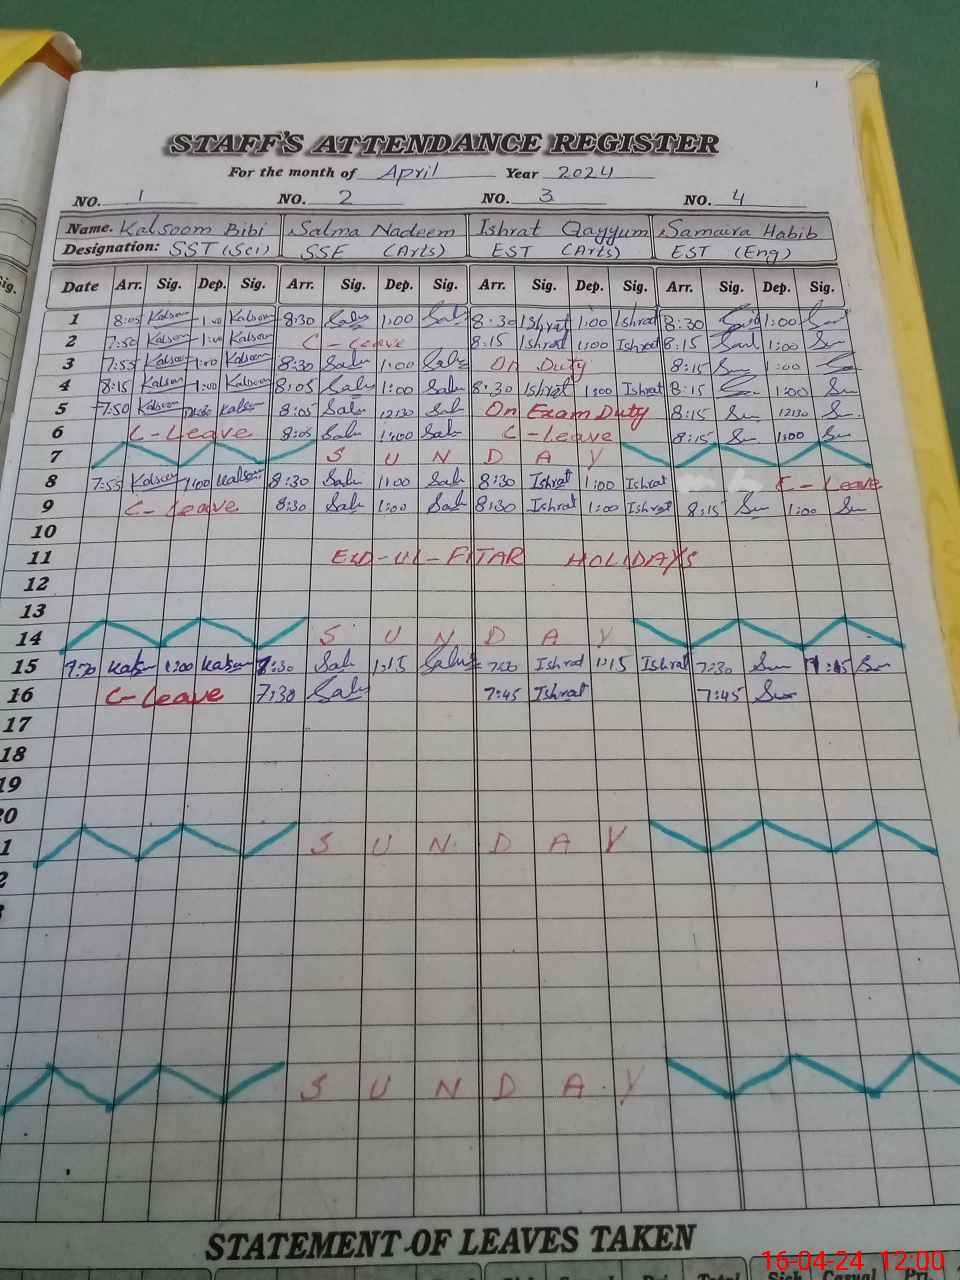 1
STAFF'S ATTENDANCE REGISTER
For the month of April Year 2024
NO. 1 NO. 2 NO. 3 NO. 4
Name. Kalsoom Bibi Salma Nadeem Ishrat Qayyum Samaira Habib
Designation: SST (Sci) SSE (Arts) EST (Arts) EST (Eng)
Sig.
Date Arr. Sig. Dep. Sig. Arr. Sig. Dep. Sig. Arr. Sig. Dep. Sig. Arr. Sig. Dep. Sig.
1 8:05 Kalsoom 1:00 Kalsoom 8:30 1:00 8:30 Ishrat 1:00 Ishrat 8:30 1:00
2 7:50 Kalsoom 1:00 Kalsoom C-Leave 8:15 Ishrat 1:00 Ishrat 8:15 1:00
3 7:55 Kalsoom 1:00 Kalsoom 8:30 1:00 On Duty 8:15 1:00
4 8:15 Kalsoom 1:00 Kalsoom 8:05 1:00 8:30 Ishrat 1:00 Ishrat 8:15 1:00
5 7:50 Kalsoom Kalsoom 8:05 12:30 On Exam Duty 8:15 12:30
6 C-Leave 8:05 1:00 C-Leave 8:15 1:00
7 S U N D A Y
8 7:55 Kalsoom 1:00 Kalsoom 8:30 1:00 8:30 Ishrat 1:00 Ishrat C-Leave
9 C-Leave 8:30 1:00 8:30 Ishrat 1:00 Ishrat 8:15 1:00
10
11 EID-UL-FITAR HOLIDAYS
12
13
14 S U N D A Y
15 7:30 Kalsoom 1:00 Kalsoom 7:30 1:15 7:00 Ishrat 1:15 Ishrat 7:30 1:15
16 C-Leave 7:30 7:45 Ishrat 7:45
17
18
19
20
1 S U N D A Y
2
S U N D A Y
STATEMENT OF LEAVES TAKEN
16-04-24 12:00